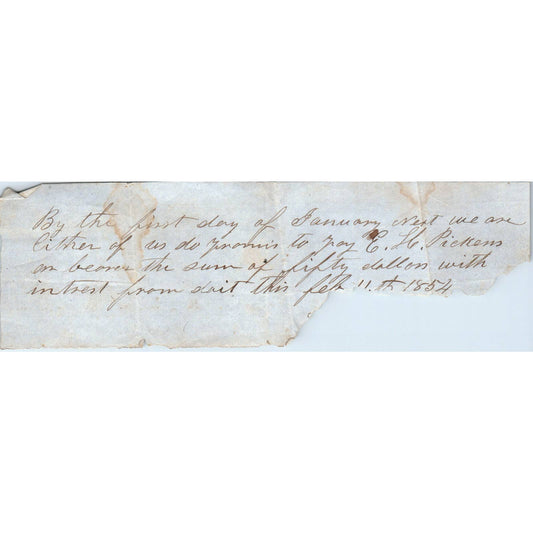 By the first day of January Next we are
Either of us do promis to pay E. H. Pickens
or bearer the sum of fifty dollars with
intrest from dait this feb 11.th 1854